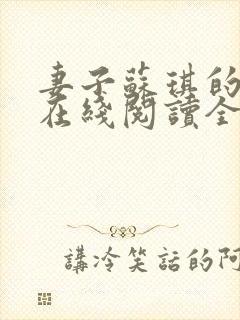 妻子蘇琪的
在綫閱讀全
講冷笑話的阿